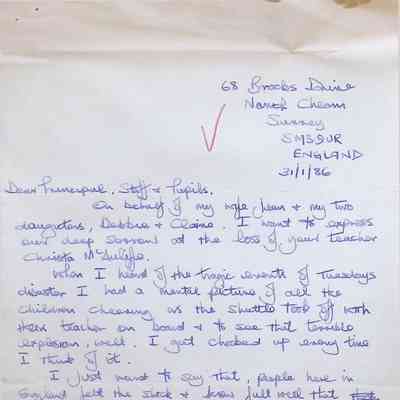 68 Brocks Drive
North Cheam
Surrey
SM3 9UR
ENGLAND
31/1/86
Dear Principal, Staff & Pupils,
On behalf of my wife Jean & my two
daughters, Debbie & Claire. I want to express
our deep sorrow at the loss of your teacher
Christa McAuliffe.
When I heard of the tragic events of Tuesdays
disaster I had a mental picture of all the
children cheering as the shuttle took off with
their teacher on board & to see that terrible
explosion, well. I get choked up every time
I think of it.
I just want to say that, people here in
England felt the shock & know full well that